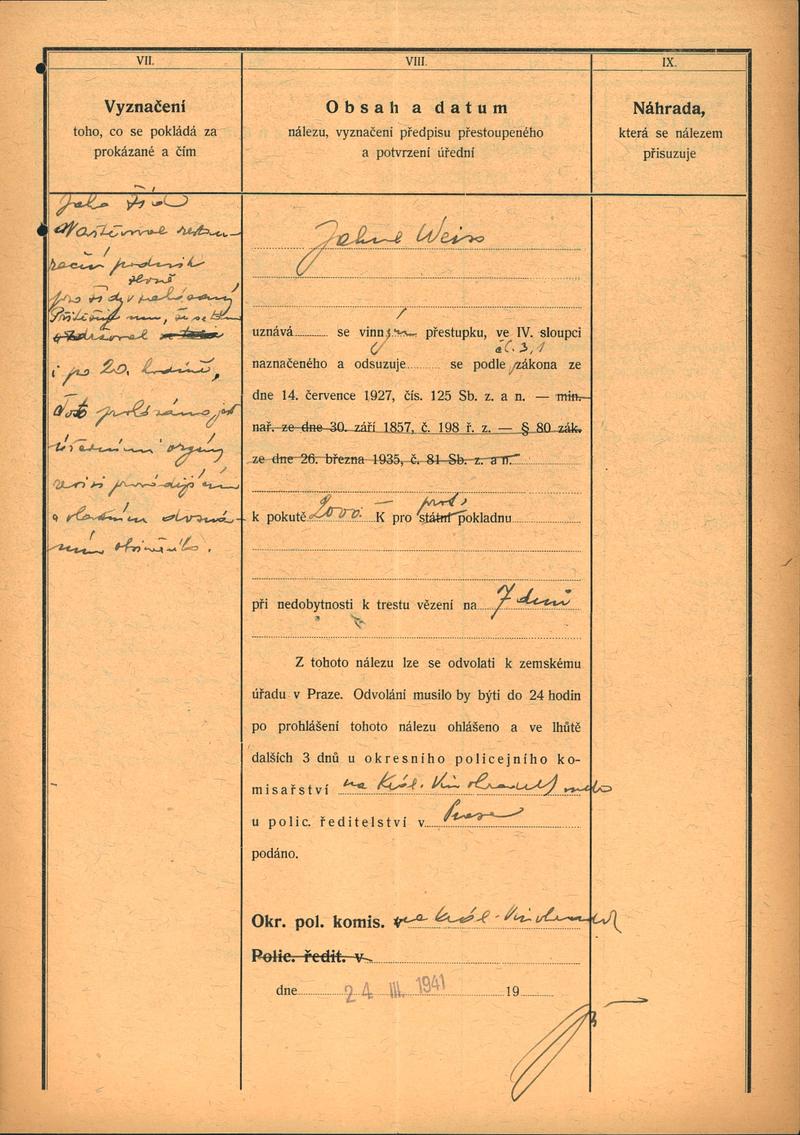 VII.
Vyznačení
toho, co se pokládá za
prokázané a čím
Jako Žid
restau-
rační podnik
i po 20. hodině,
úředními orgány
a vlastním doznáním
VIII.
Obsah a datum
nálezu, vyznačení předpisu přestoupeného
a potvrzení úřední
Weiss
uznává se vinným přestupku, ve IV. sloupci
čl. 3,1
naznačeného a odsuzuje se podle zákona ze
dne 14. července 1927, čís. 125 Sb. z. a n. — min.
nař. ze dne 30. září 1857, č. 198 ř. z. — § 80 zák.
ze dne 26. března 1935, č. 81 Sb. z. a n.
prot.
k pokutě 2000.— K pro státní pokladnu
při nedobytnosti k trestu vězení na 7 dnů
Z tohoto nálezu lze se odvolati k zemskému
úřadu v Praze. Odvolání musilo by býti do 24 hodin
po prohlášení tohoto nálezu ohlášeno a ve lhůtě
dalších 3 dnů u okresního policejního ko-
misařství na Král. Vinohradech nebo
u polic. ředitelství v Praze
podáno.
Okr. pol. komis. na Král. Vinohradech
Polic. ředit. v
dne 24 III. 1941 19
IX.
Náhrada,
která se nálezem
přisuzuje